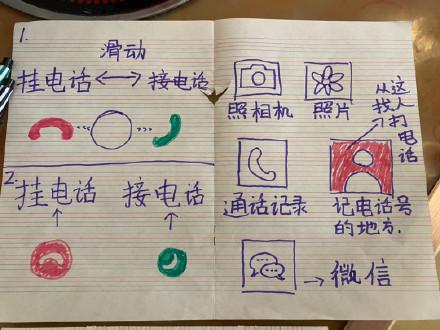 1.
滑动
挂电话 ←→ 接电话
2.
挂电话 接电话
照相机 照片
通话记录
从这找人打电话
记电话号的地方.
→微信